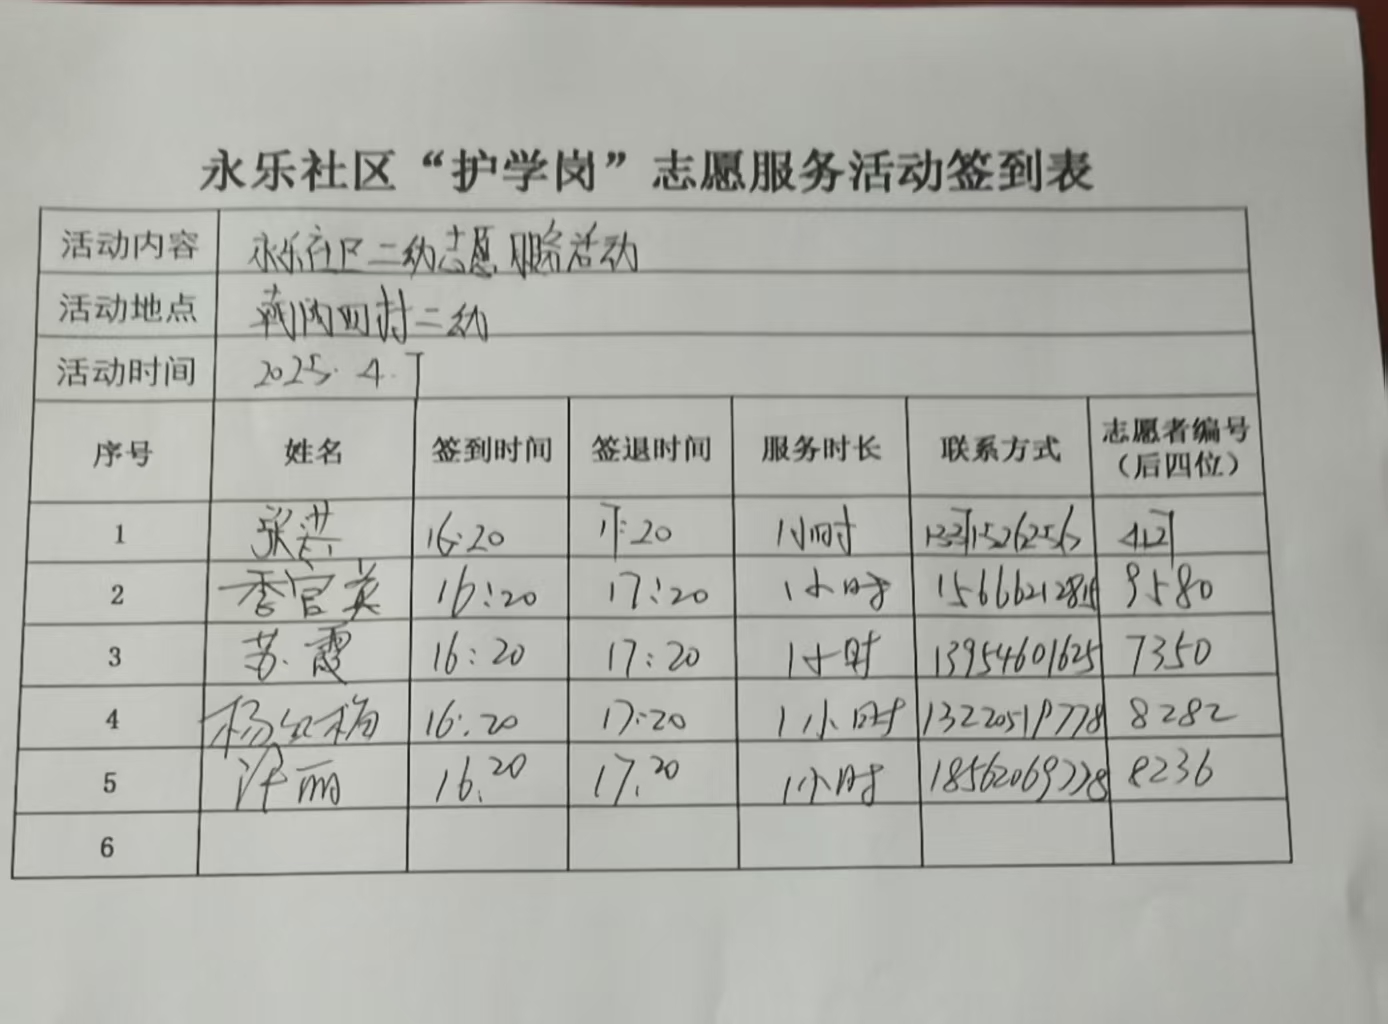 永乐社区“护学岗”志愿服务活动签到表
活动内容 永乐社区二幼志愿服务活动
活动地点 四村二幼
活动时间 2025.4.7
序号 姓名 签到时间 签退时间 服务时长 联系方式 志愿者编号（后四位）
1 张 16:20 17:20 1小时
2 李官英 16:20 17:20 1小时 9580
3 苏霞 16:20 17:20 1小时 13954601625 7350
4 杨红梅 16:20 17:20 1小时 13220519778 8282
5 许丽 16:20 17:20 1小时 18562069778 8236
6